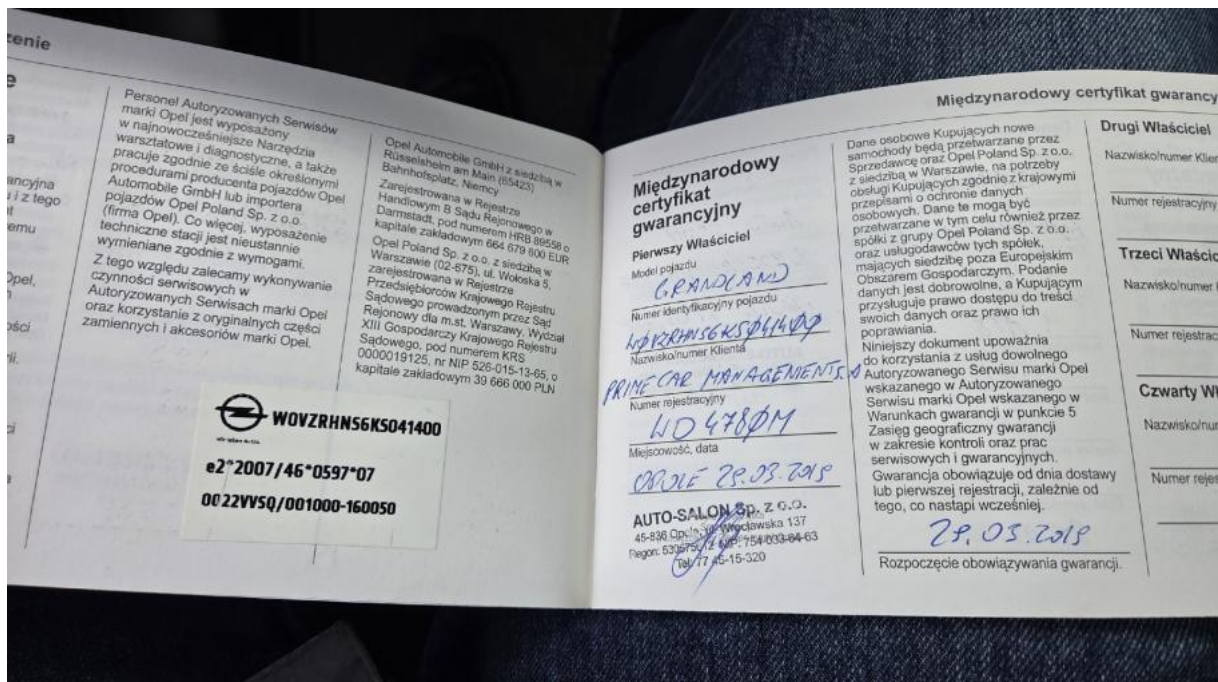 zenie
Personel Autoryzowanych Serwisów
marki Opel jest wyposażony
w najnowocześniejsze Narzędzia
warsztatowe i diagnostyczne, a także
pracuje zgodnie ze ściśle określonymi
procedurami producenta pojazdów Opel
Automobile GmbH lub importera
pojazdów Opel Poland Sp. z o.o.
(firma Opel). Co więcej, wyposażenie
techniczne stacji jest nieustannie
wymieniane zgodnie z wymogami.
Z tego względu zalecamy wykonywanie
czynności serwisowych w
Autoryzowanych Serwisach marki Opel
oraz korzystanie z oryginalnych części
zamiennych i akcesoriów marki Opel.
Opel Automobile GmbH z siedzibą w
Rüsselsheim am Main (65423)
Bahnhofsplatz, Niemcy
Zarejestrowana w Rejestrze
Handlowym B Sądu Rejonowego w
Darmstadt, pod numerem HRB 89558 o
kapitale zakładowym 664 679 800 EUR
Opel Poland Sp. z o.o. z siedzibą w
Warszawie (02-675), ul. Wołoska 5,
zarejestrowana w Rejestrze
Przedsiębiorców Krajowego Rejestru
Sądowego prowadzonym przez Sąd
Rejonowy dla m.st. Warszawy, Wydział
XIII Gospodarczy Krajowego Rejestru
Sądowego, pod numerem KRS
0000019125, nr NIP 526-015-13-65, o
kapitale zakładowym 39 666 000 PLN
W0VZRHNS6KS041400
e2*2007/46*0597*07
0022VVSQ/001000-160050
Międzynarodowy certyfikat gwarancy
Międzynarodowy
certyfikat
gwarancyjny
Pierwszy Właściciel
Model pojazdu
GRANDLAND
Numer identyfikacyjny pojazdu
WØVZRHNS6KSØ414ØØ
Nazwisko/numer Klienta
PRIME CAR MANAGEMENT S.A
Numer rejestracyjny
WD 478ØM
Miejscowość, data
OPOLE 29.03.2019
AUTO-SALON Sp. z o.o.
45-836 Opole, ul. Wrocławska 137
Regon: NIP: 754-033-64-63
Tel. 77 45-15-320
Dane osobowe Kupujących nowe
samochody będą przetwarzane przez
Sprzedawcę oraz Opel Poland Sp. z o.o.
z siedzibą w Warszawie, na potrzeby
obsługi Kupujących zgodnie z krajowymi
przepisami o ochronie danych
osobowych. Dane te mogą być
przetwarzane w tym celu również przez
spółki z grupy Opel Poland Sp. z o.o.
oraz usługodawców tych spółek,
mających siedzibę poza Europejskim
Obszarem Gospodarczym. Podanie
danych jest dobrowolne, a Kupującym
przysługuje prawo dostępu do treści
swoich danych oraz prawo ich
poprawiania.
Niniejszy dokument upoważnia
do korzystania z usług dowolnego
Autoryzowanego Serwisu marki Opel
wskazanego w Autoryzowanego
Serwisu marki Opel wskazanego w
Warunkach gwarancji w punkcie 5
Zasięg geograficzny gwarancji
w zakresie kontroli oraz prac
serwisowych i gwarancyjnych.
Gwarancja obowiązuje od dnia dostawy
lub pierwszej rejestracji, zależnie od
tego, co nastąpi wcześniej.
29.03.2019
Rozpoczęcie obowiązywania gwarancji.
Drugi Właściciel
Nazwisko/numer Klien
Numer rejestracyjny
Trzeci Właścic
Nazwisko/numer
Numer rejestrac
Czwarty Wł
Nazwisko/nu
Numer rejes